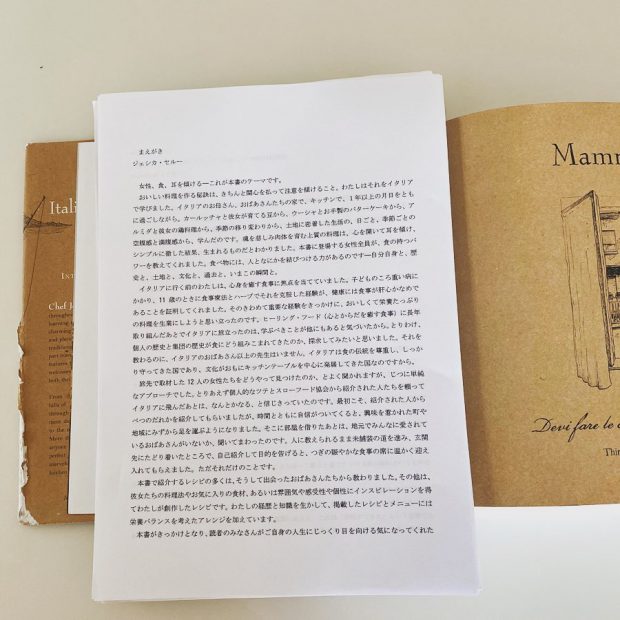 まえがき
ジェシカ・セルー
女性、食、耳を傾ける―これが本書のテーマです。
おいしい料理を作る秘訣は、きちんと関心を払って注意を傾けること。わたしはそれをイタリア
で学びました。イタリアのお母さん、おばあさんたちの家で、キッチンで、1年以上の月日をとも
に過ごしながら。カールッチャと彼女が育てる豆から、ウーシャとお手製のバターケーキから、ア
ルミダと彼女の鶏料理から、季節の移り変わりから、土地に密着した生活の、日ごと、季節ごとの
空腹感と満腹感から、学んだのです。魂を慈しみ肉体を育む上質の料理は、心を開いて耳を傾け、
シンプルに徹した結果、生まれるものだとわかりました。本書に登場する女性全員が、食の持つパ
ワーを教えてくれました。食べ物には、人となにかを結びつける力があるのです―自分自身と、歴
史と、土地と、文化と、過去と、いまこの瞬間と。
イタリアに行く前のわたしは、心身を癒す食事に焦点を当てていました。子どものころ重い病に
かかり、11歳のときに食事療法とハーブでそれを克服した経験が、健康には食事が肝心かなめで
あることを証明してくれました。そのきわめて重要な経験をきっかけに、おいしくて栄養たっぷり
の料理を生業にしようと思い立ったのです。ヒーリング・フード（心とからだを癒す食事）に長年
取り組んだあとでイタリアに旅立ったのは、学ぶべきことが他にもあると気づいたから。とりわけ、
個人の歴史と集団の歴史が食にどう組みこまれてきたのか、探求してみたいと思いました。それを
教わるのに、イタリアのおばあさん以上の先生はいません。イタリアは食の伝統を尊重し、しっか
り守ってきた国であり、文化がおもにキッチンテーブルを中心に発展してきた国なのですから。
旅先で取材した12人の女性たちをどうやって見つけたのか、とよく聞かれますが、じつに単純
なアプローチでした。とりあえず個人的なツテとスローフード協会から紹介された人たちを頼って
イタリアに飛んだあとは、なんとかなる、と信じきっていたのです。最初こそ、紹介された人から
べつのだれかを紹介してもらいましたが、時間とともに自信がついてくると、興味を惹かれた町や
地域にみずから足を運ぶようになりました。そこに部屋を借りたあとは、地元でみんなに愛されて
いるおばあさんがいないか、聞いてまわったのです。人に教えられるまま未舗装の道を進み、玄関
先にたどり着いたところで、自己紹介して目的を告げると、つぎの賑やかな食事の席に温かく迎え
入れてもらえました。ただそれだけのことです。
本書で紹介するレシピの多くは、そうして出会ったおばあさんたちから教わりました。その他は、
彼女たちの料理法やお気に入りの食材、あるいは雰囲気や感受性や個性にインスピレーションを得
てわたしが創作したレシピです。わたしの経歴と知識を生かして、掲載したレシピとメニューには
栄養バランスを考えたアレンジを加えています。
本書がきっかけとなり、読者のみなさんがご自身の人生にじっくり目を向ける気になってくれた
Ital
Chef J
Mamm
Devi fare le
Thin